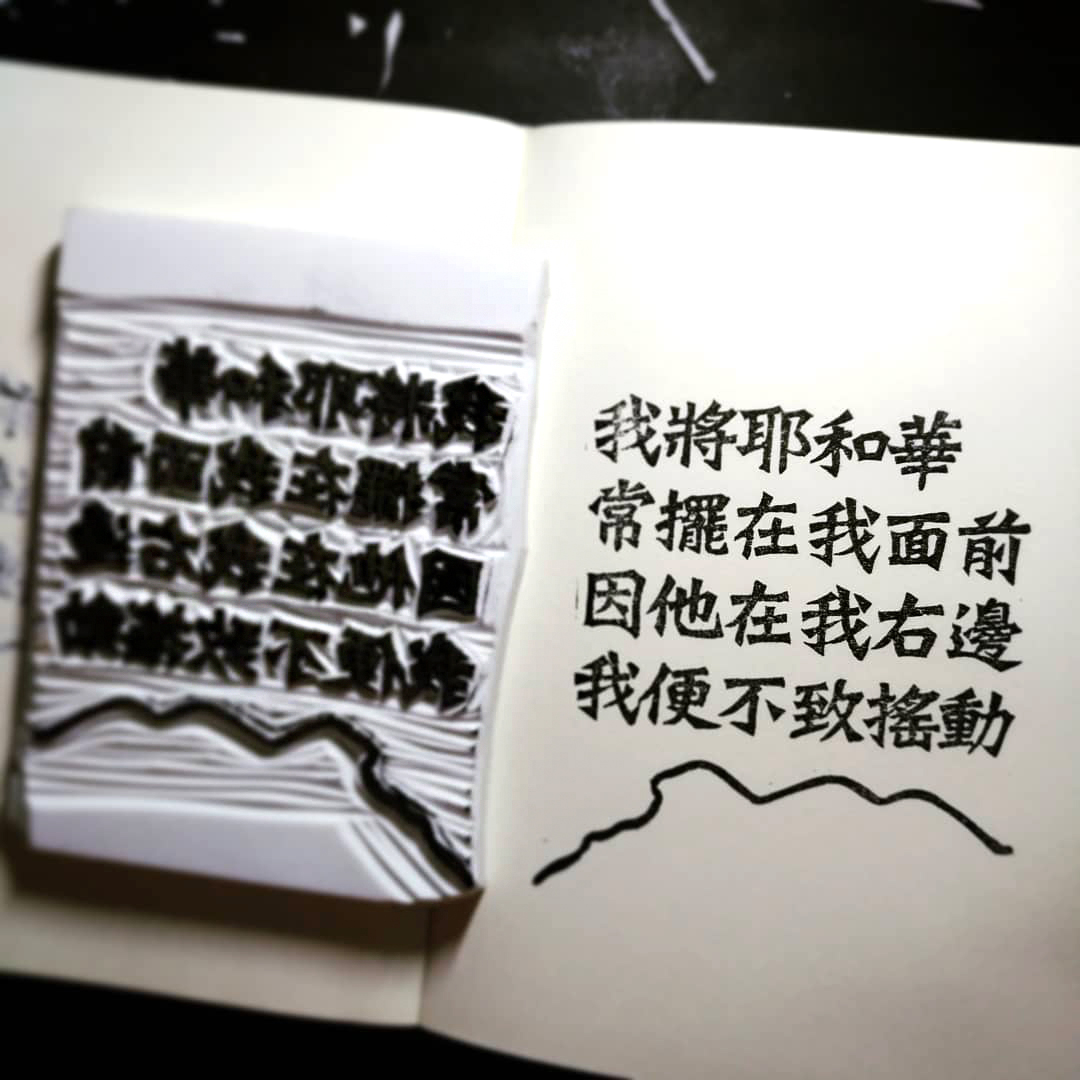 我將耶和華
常擺在我面前
因他在我右邊
我便不致搖動